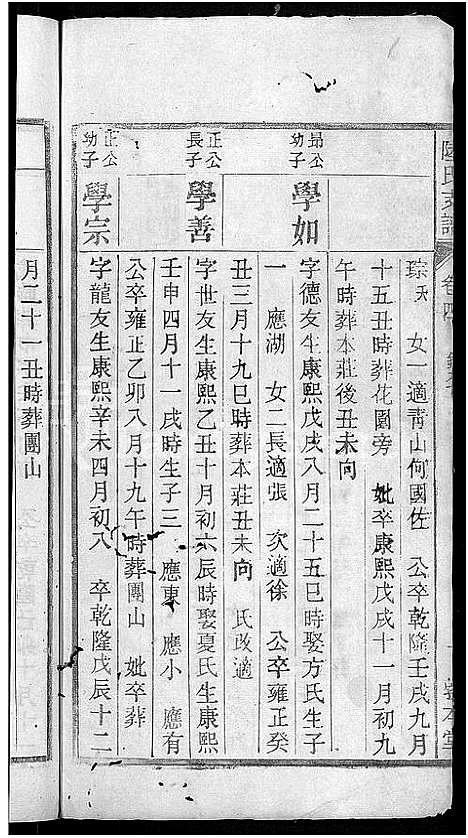 陳氏支譜
卷四
琮夭 女一適青山何國佐 公卒乾隆壬戌九月
十五丑時葬花園旁 妣卒康熙戊戌十一月初九
午時葬本莊後丑未向
昂公幼子
學如
字德友生康熙戊戌八月二十五巳時娶方氏生子
一 應湖 女二長適張 次適徐 公卒雍正癸
丑三月十九巳時葬本莊丑未向 氏改適
正公長子
學善
字世友生康熙乙丑十月初六辰時娶夏氏生康熙
壬申四月十一戌時生子三 應東 應小 應有
公卒雍正乙卯八月十九午時葬團山 妣卒葬
正公幼子
學宗
字龍友生康熙辛未四月初八 卒乾隆戊辰十二
月二十一丑時葬團山